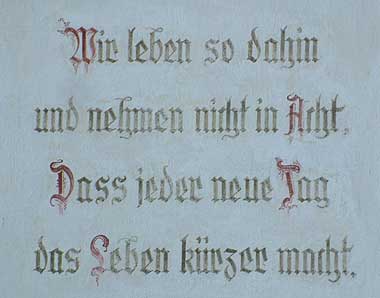 Wir leben so dahin
und nehmen nicht in Acht,
Dass jeder neue Tag
das Leben kürzer macht.